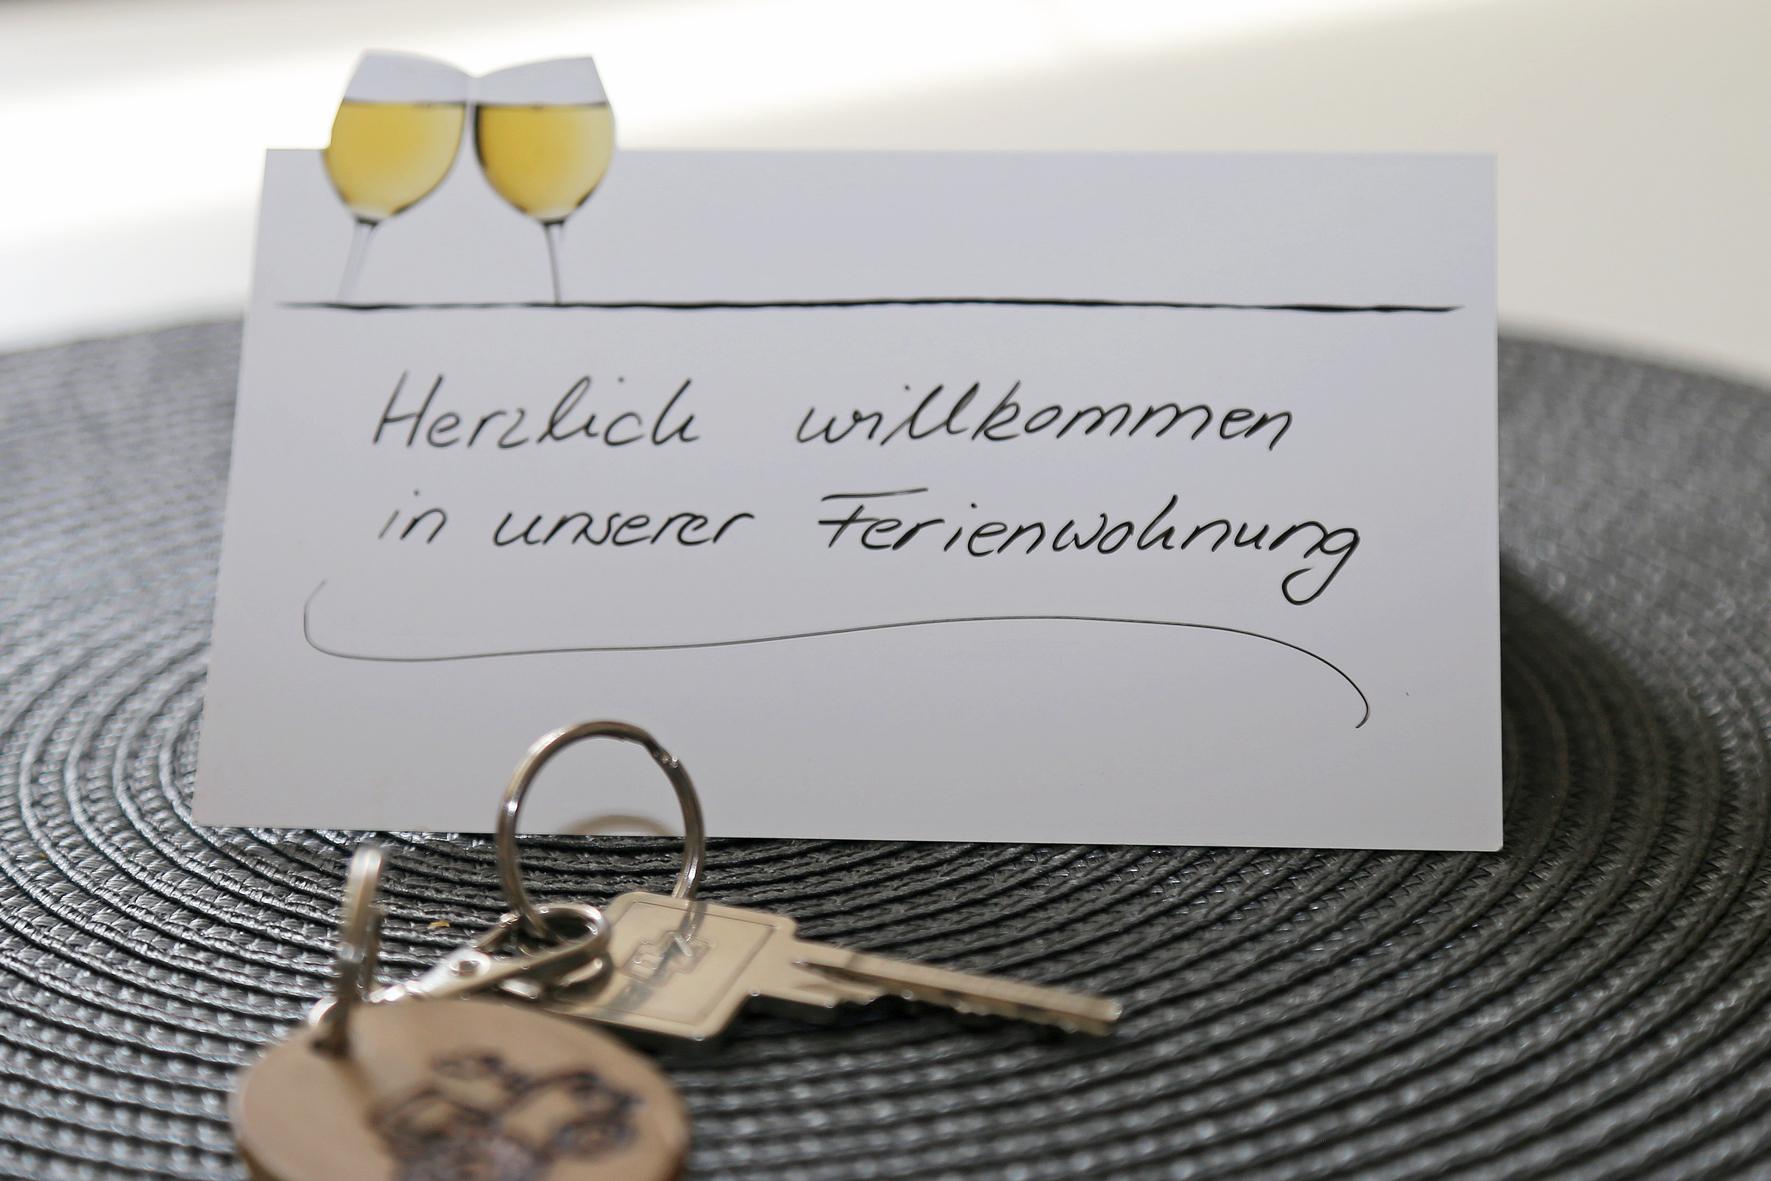 Herzlich willkommen
in unserer Ferienwohnung